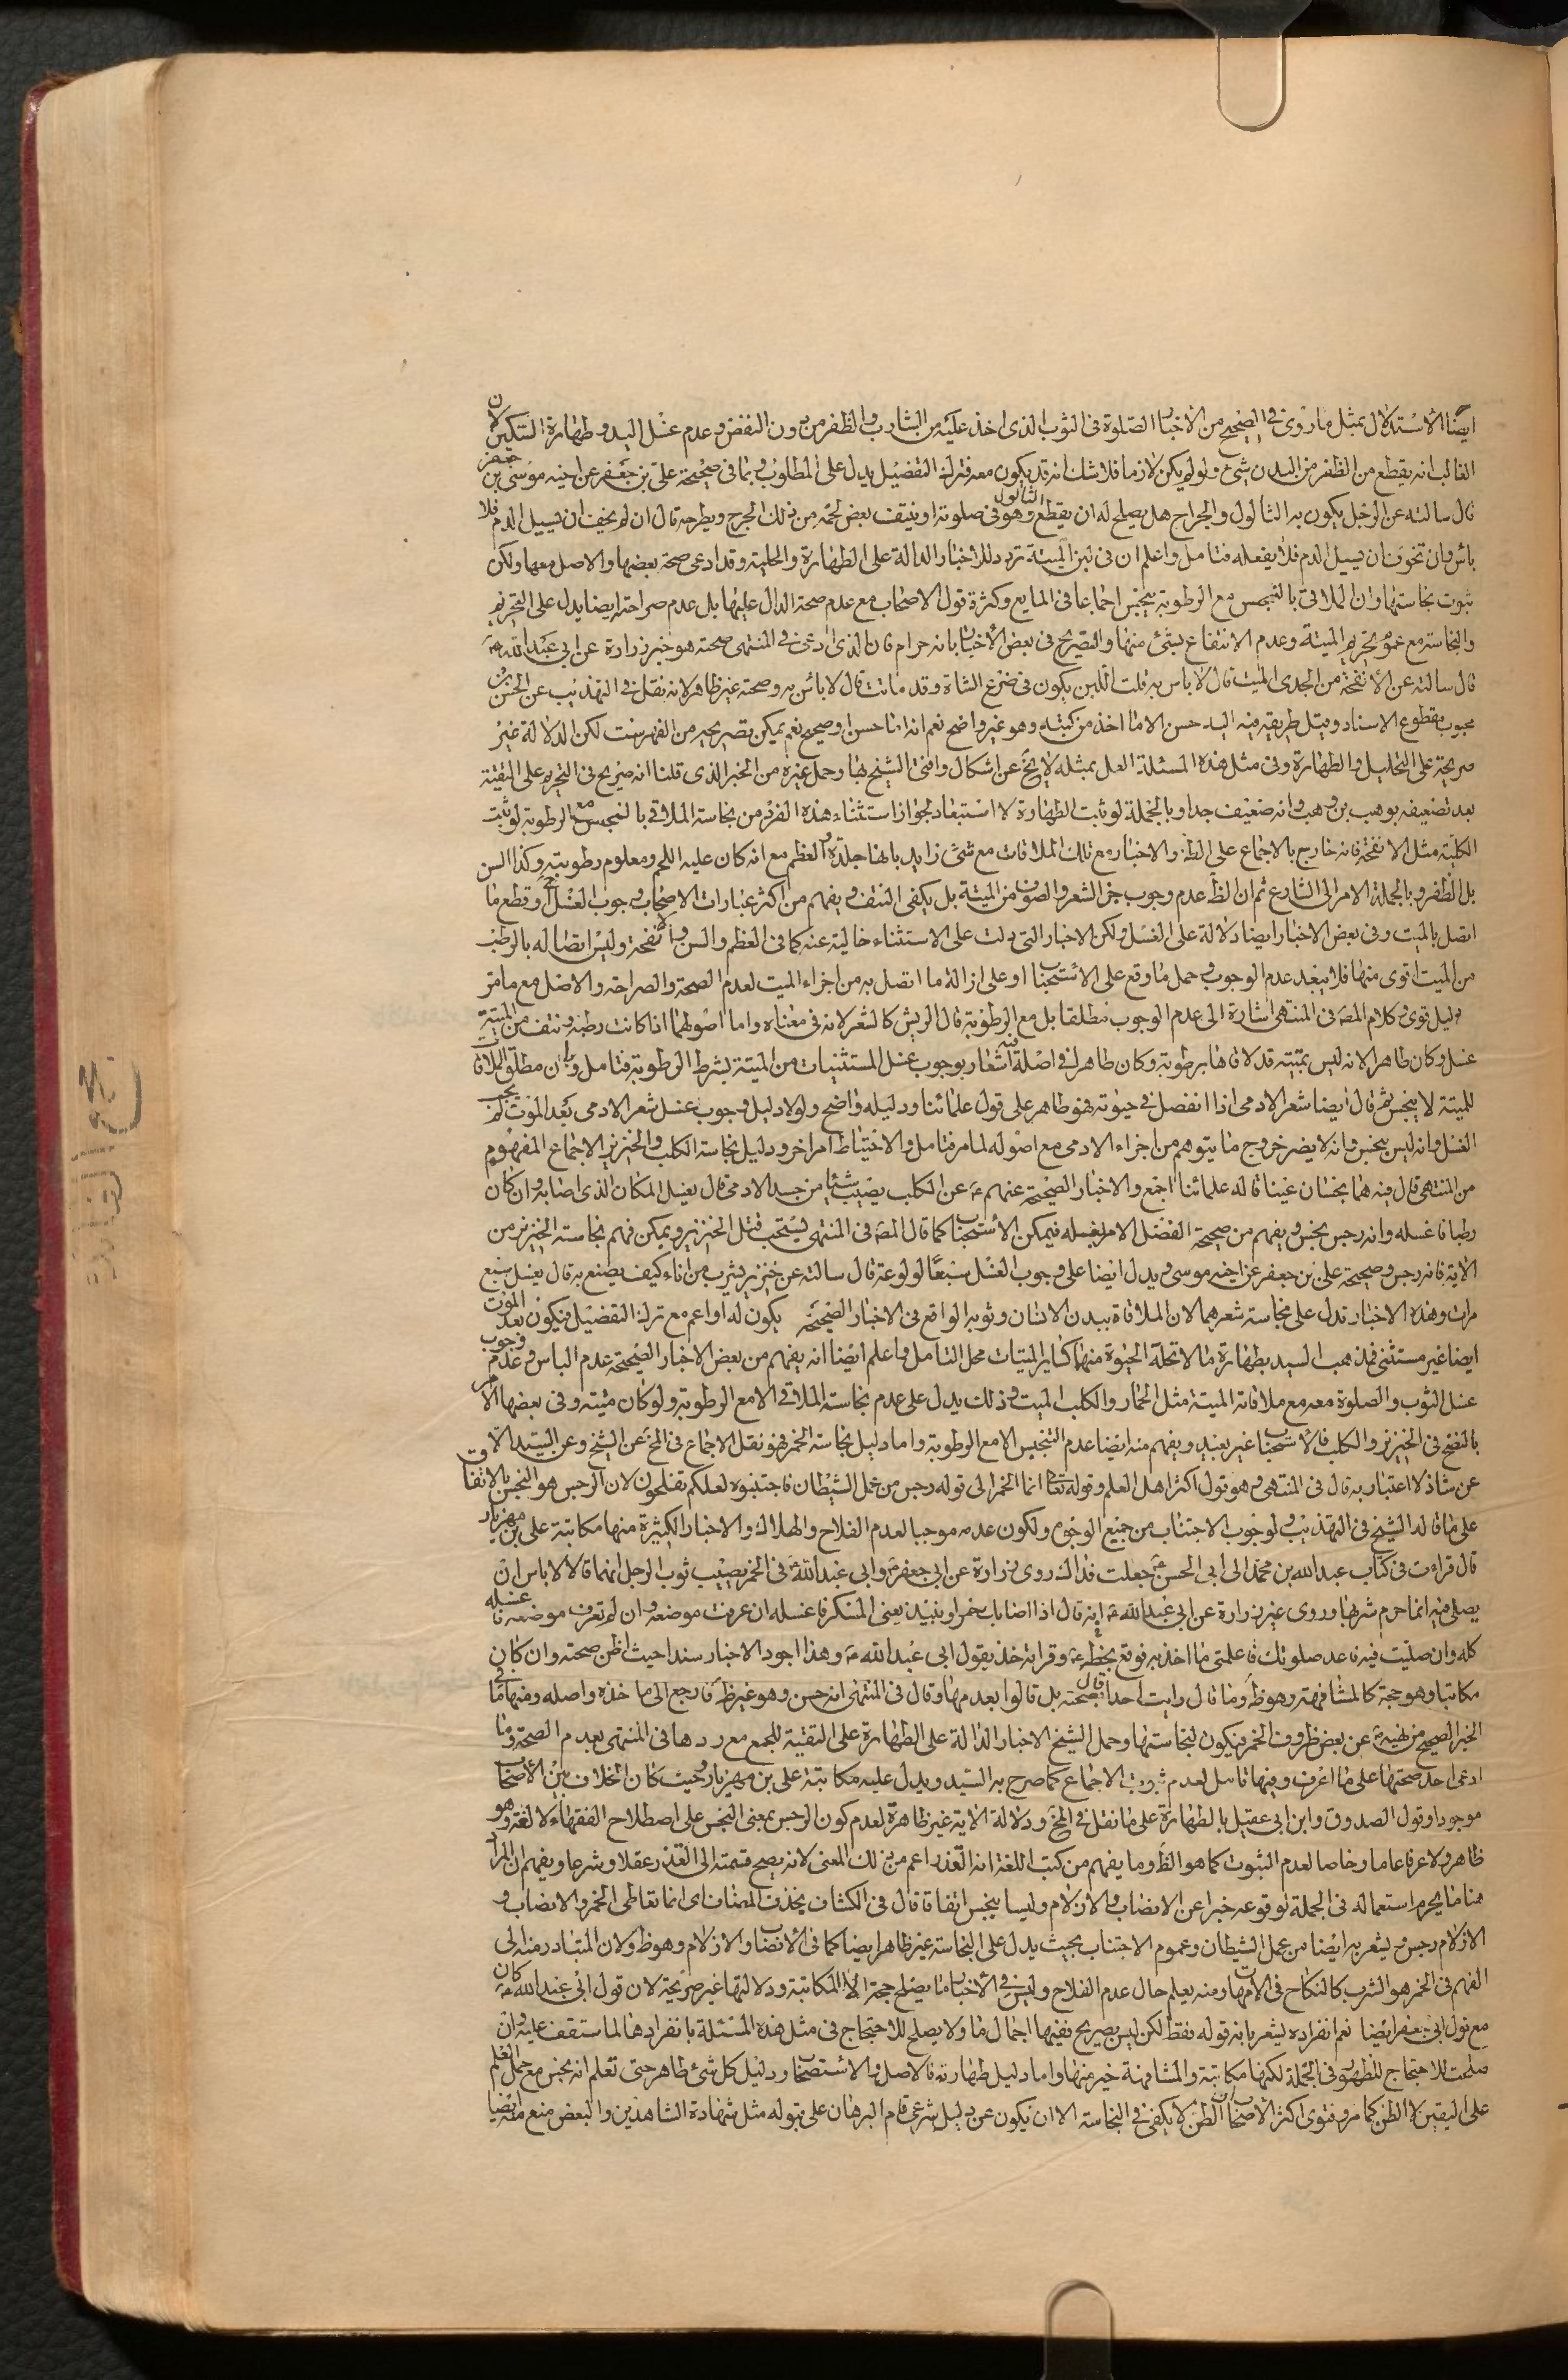 ايضا الاستدلال بمثل ما روى فى الصحيح من الاخبار الصلوة فى الثوب الذى اخذ عليه من الشارب والظفر من دون النفض وعدم غسل اليد وطهارة السكين لان
الغالب انه يقطع من الظفر من البدن شئ ولو لم يكن لازما فلا شك انه قد يكون معه فترك التفصيل يدل على المطلوب وبما فى صحيحة على بن جعفر عن اخيه موسى بن جعفر
قال سالته عن الرجل يكون به الثالول والجراح هل يصلح له ان يقطع الثالول وهو فى صلوته او ينتف بعض لحمه من ذلك الجرح ويطرحه قال ان لم يخف ان يسيل الدم فلا
باس وان تخوف ان يسيل الدم فلا يفعله فتامل واعلم ان فى لبن الميتة تردد للاخبار الدالة على الطهارة والحلية وقد ادعى صحة بعضها والاصل معها ولكن
ثبوت نجاستها وان الملاقى بالنجس مع الرطوبة ينجس اجماعا فى المايع وكثرة قول الاصحاب مع عدم صحة الدال عليها بل عدم صراحته ايضا يدل على التحريم
والنجاسة مع عموم تحريم الميتة وعدم الانتفاع بشئ منها والتصريح فى بعض الاخبار بانه حرام فان الذى ادعى فى المنتهى صحته هو خبر زرارة عن ابى عبد الله ع
قال سالته عن الانفحة من الجدى الميت قال لا باس به قلت اللبن يكون فى ضرع الشاة وقد ماتت قال لا باس به وصحته غير ظاهر لانه نقل فى التهذيب عن الحسن بن
محبوب مقطوع الاسناد وقيل طريقه فيه اليه حسن الا ما اخذ من كتبه وهو غير واضح نعم انه اما حسن او صحيح نعم يمكن تصريحه من الفهرست لكن الدلالة غير
صريحة على التحليل والطهارة وفى مثل هذه المسئلة العمل بمثله لا يخ عن اشكال وافتى الشيخ بها وحمل غيره من الخبر الذى قلنا انه صريح فى التحريم على التقية
بعد تضعيفه بوهب بن وهب وانه ضعيف جدا وبالجملة لو ثبت الطهارة لا استبعاد لجواز استثناء هذه الفرد من نجاسة الملاقى بالنجس مع الرطوبة لو ثبت
الكلية مثل الانفحة فانه خارج بالاجماع على الظ والاخبار مع تلك الملاقات مع شئ زايد بانها جلدة والعظم مع انه كان عليه اللحم ومعلوم رطوبته وكذا السن
بل الظفر وبالجملة الامر الى الشارع ثم ان الظ عدم وجوب جز الشعر والصوف من الميتة بل يكفى النتف ويفهم من اكثر عبارات الاصحاب وجوب الغسل ح وقطع ما
اتصل بالميت وفى بعض الاخبار ايضا دلالة على الغسل ولكن الاخبار التى دلت على الاستثناء خالية عنه كما فى العظم والسن والانفحة وليس اتصاله بالرطب
من الميت اقوى منها فلا يبعد عدم الوجوب وحمل ما وقع على الاستحباب او على ازالة ما اتصل به من اجزاء الميت لعدم الصحة والصراحة والاصل مع ما مر
دليل قوى وكلام المص فى المنتهى اشارة الى عدم الوجوب مطلقا بل مع الرطوبة قال الريش كالشعر لانه فى معناه واما اصولها اذا كانت رطبة ونتف من الميتة
غسل وكان طاهرا لانه ليس بميتة قد لاقاها برطوبة وكان طاهرا فى اصله فيه اشعار بوجوب غسل المستثنيات من الميتة بشرط الرطوبة فتامل وبان مطلق الملاقات
للميتة لا ينجس ثم قال ايضا شعر الادمى اذا انفصل فى حيوته فهو طاهر على قول علمائنا ودليله واضح ولا دليل وجوب غسل شعر الادمى بعد الموت لم يجب
الغسل وانه ليس بنجس وانه لا يضر خروج ما يتوهم من اجزاء الادمى مع اصوله لما مر فتامل والاحتياط امر اخر ودليل نجاسة الكلب والخنزير الاجماع المفهوم
من المنتهى قال فيه هما نجسان عينا قاله علمائنا اجمع والاخبار الصحيحة عنهم ع عن الكلب يصيب شيئا من جسد الادمى قال يغسل المكان الذى اصابه وان كان
رطبا فاغسله وانه رجس نجس ويفهم من صحيحة الفضل الامر بغسله فيمكن الاستحباب كما قال المص فى المنتهى يستحب قتل الخنزير ويمكن فهم نجاسة الخنزير من
الاية فانه رجس وصحيحة على بن جعفر عن اخيه موسى ويدل ايضا على وجوب الغسل سبعا لولوغه قال سالته عن خنزير يشرب من اناء كيف يصنع به قال يغسل سبع
مرات وهذه الاخبار تدل على نجاسة شعرهما لان الملاقاة ببدن الانسان وثوبه الواقع فى الاخبار الصحيحة يكون له او اعم مع ترك التفصيل فيكون بعد الموت
ايضا غير مستثنى فمذهب السيد بطهارة ما لا تحله الحيوة منها كساير الميتات محل التامل واعلم ايضا انه يفهم من بعض الاخبار الصحيحة عدم الباس وعدم وجوب
غسل الثوب والصلوة معه مع ملاقاته الميتة مثل الحمار والكلب الميت وذلك يدل على عدم نجاسة الملاقى الا مع الرطوبة ولو كان ميتة وفى بعضها الامر
بالنضح فى الخنزير والكلب فالاستحباب غير بعيد ويفهم منه ايضا عدم التنجيس الا مع الرطوبة واما دليل نجاسة الخمر فهو نقل الاجماع فى المخ عن الشيخ وعن السيد الا
عن شاذ لا اعتبار به قال فى المنتهى وهو قول اكثر اهل العلم وقوله تعا انما الخمر الى قوله رجس من عمل الشيطان فاجتنبوه لعلكم تفلحون لان الرجس هو النجس بالاتفاق
على ما قاله الشيخ فى التهذيب ولوجوب الاجتناب من جميع الوجوه ولكون عدمه موجبا لعدم الفلاح والهلاك والاخبار الكثيرة منها مكاتبة على بن مهزيار
قال قراءت فى كتاب عبد الله بن محمد الى ابى الحسن ع جعلت فداك روى زرارة عن ابى جعفر ع وابى عبد الله ع فى الخمر يصيب ثوب الرجل انهما قالا لا باس ان
يصلى فيه انما حرم شربها وروى غير زرارة عن ابى عبد الله ع انه قال اذا اصاب ثوبك خمر او نبيذ يعنى المسكر فاغسله ان عرفت موضعه وان لم تعرف موضعه فاغسله
كله وان صليت فيه فاعد صلوتك فاعلمنى ما اخذ به فوقع بخطه ع وقراته خذ بقول ابى عبد الله ع وهذا اجود الاخبار سندا حيث اظن صحته وان كان
مكاتبا وهو حجة كالمشافهة وهو ظ وما قال رايت احدا قال بصحته بل قالوا بعدمها وقال فى المنتهى انه حسن وهو غير ظ فارجع الى ما خذه واصله ومنها ما فى
الخبر الصحيح من نهيه ع عن بعض ظروف الخمر فيكون لنجاستها وحمل الشيخ الاخبار الدالة على الطهارة على التقية للجمع مع ردها فى المنتهى بعدم الصحة وما
ادعى احد صحتها على ما اعرف وفيها تامل لعدم ثبوت الاجماع كما صرح به السيد ويدل عليه مكاتبة على بن مهزيار وحيث كان الخلاف بين الاصحاب
موجودا وقول الصدوق وابن ابى عقيل بالطهارة على ما نقل فى المخ ودلالة الاية غير ظاهرة لعدم كون الرجس بمعنى النجس على اصطلاح الفقهاء لا لغة وهو
ظاهر ولا عرفا عاما وخاصا لعدم الثبوت كما هو الظ وما يفهم من كتب اللغة انه القذر اعم من ذلك المعنى لانه يصح قسمته الى القذر عقلا وشرعا ويفهم ان المراد
هنا ما يحرم استعماله فى الجملة لوقوعه خبرا عن الانصاب والازلام وليسا بنجس اتفاقا قال فى الكشاف بحذف المضاف اى انما تعاطى الخمر والانصاب و
الازلام رجس ويشعر به ايضا من عمل الشيطان وعموم الاجتناب بحيث يدل على النجاسة غير ظاهر ايضا كما فى الانصاب والازلام وهو ظ ولان المتبادر منه الى
الفهم فى الخمر هو الشرب كالنكاح فى الامهات ومنه يعلم حال عدم الفلاح وليس فى الاخبار ما يصلح حجة الا المكاتبة ودلالتها غير صريحة لان قول ابى عبد الله ع كان
مع قول ابى جعفر ايضا نعم انفراده يشعر بانه قوله فقط لكن ليس بصريح ففيها اجمال ما ولا يصلح للاحتجاج فى مثل هذه المسئلة بانفرادها لما ستقف عليه وان
صلحت للاحتجاج للظهور فى الجملة لكنها مكاتبة والمشافهة خير منها واما دليل طهارته فالاصل والاستصحاب ودليل كل شئ طاهر حتى تعلم انه نجس مع حمل العلم
على اليقين لا الظن كما مر وفتوى اكثر الاصحاب ان الظن لا يكفى فى النجاسة الا ان يكون عن دليل شرعى قام البرهان على قبوله مثل شهادة الشاهدين والبعض منع منه ايضا